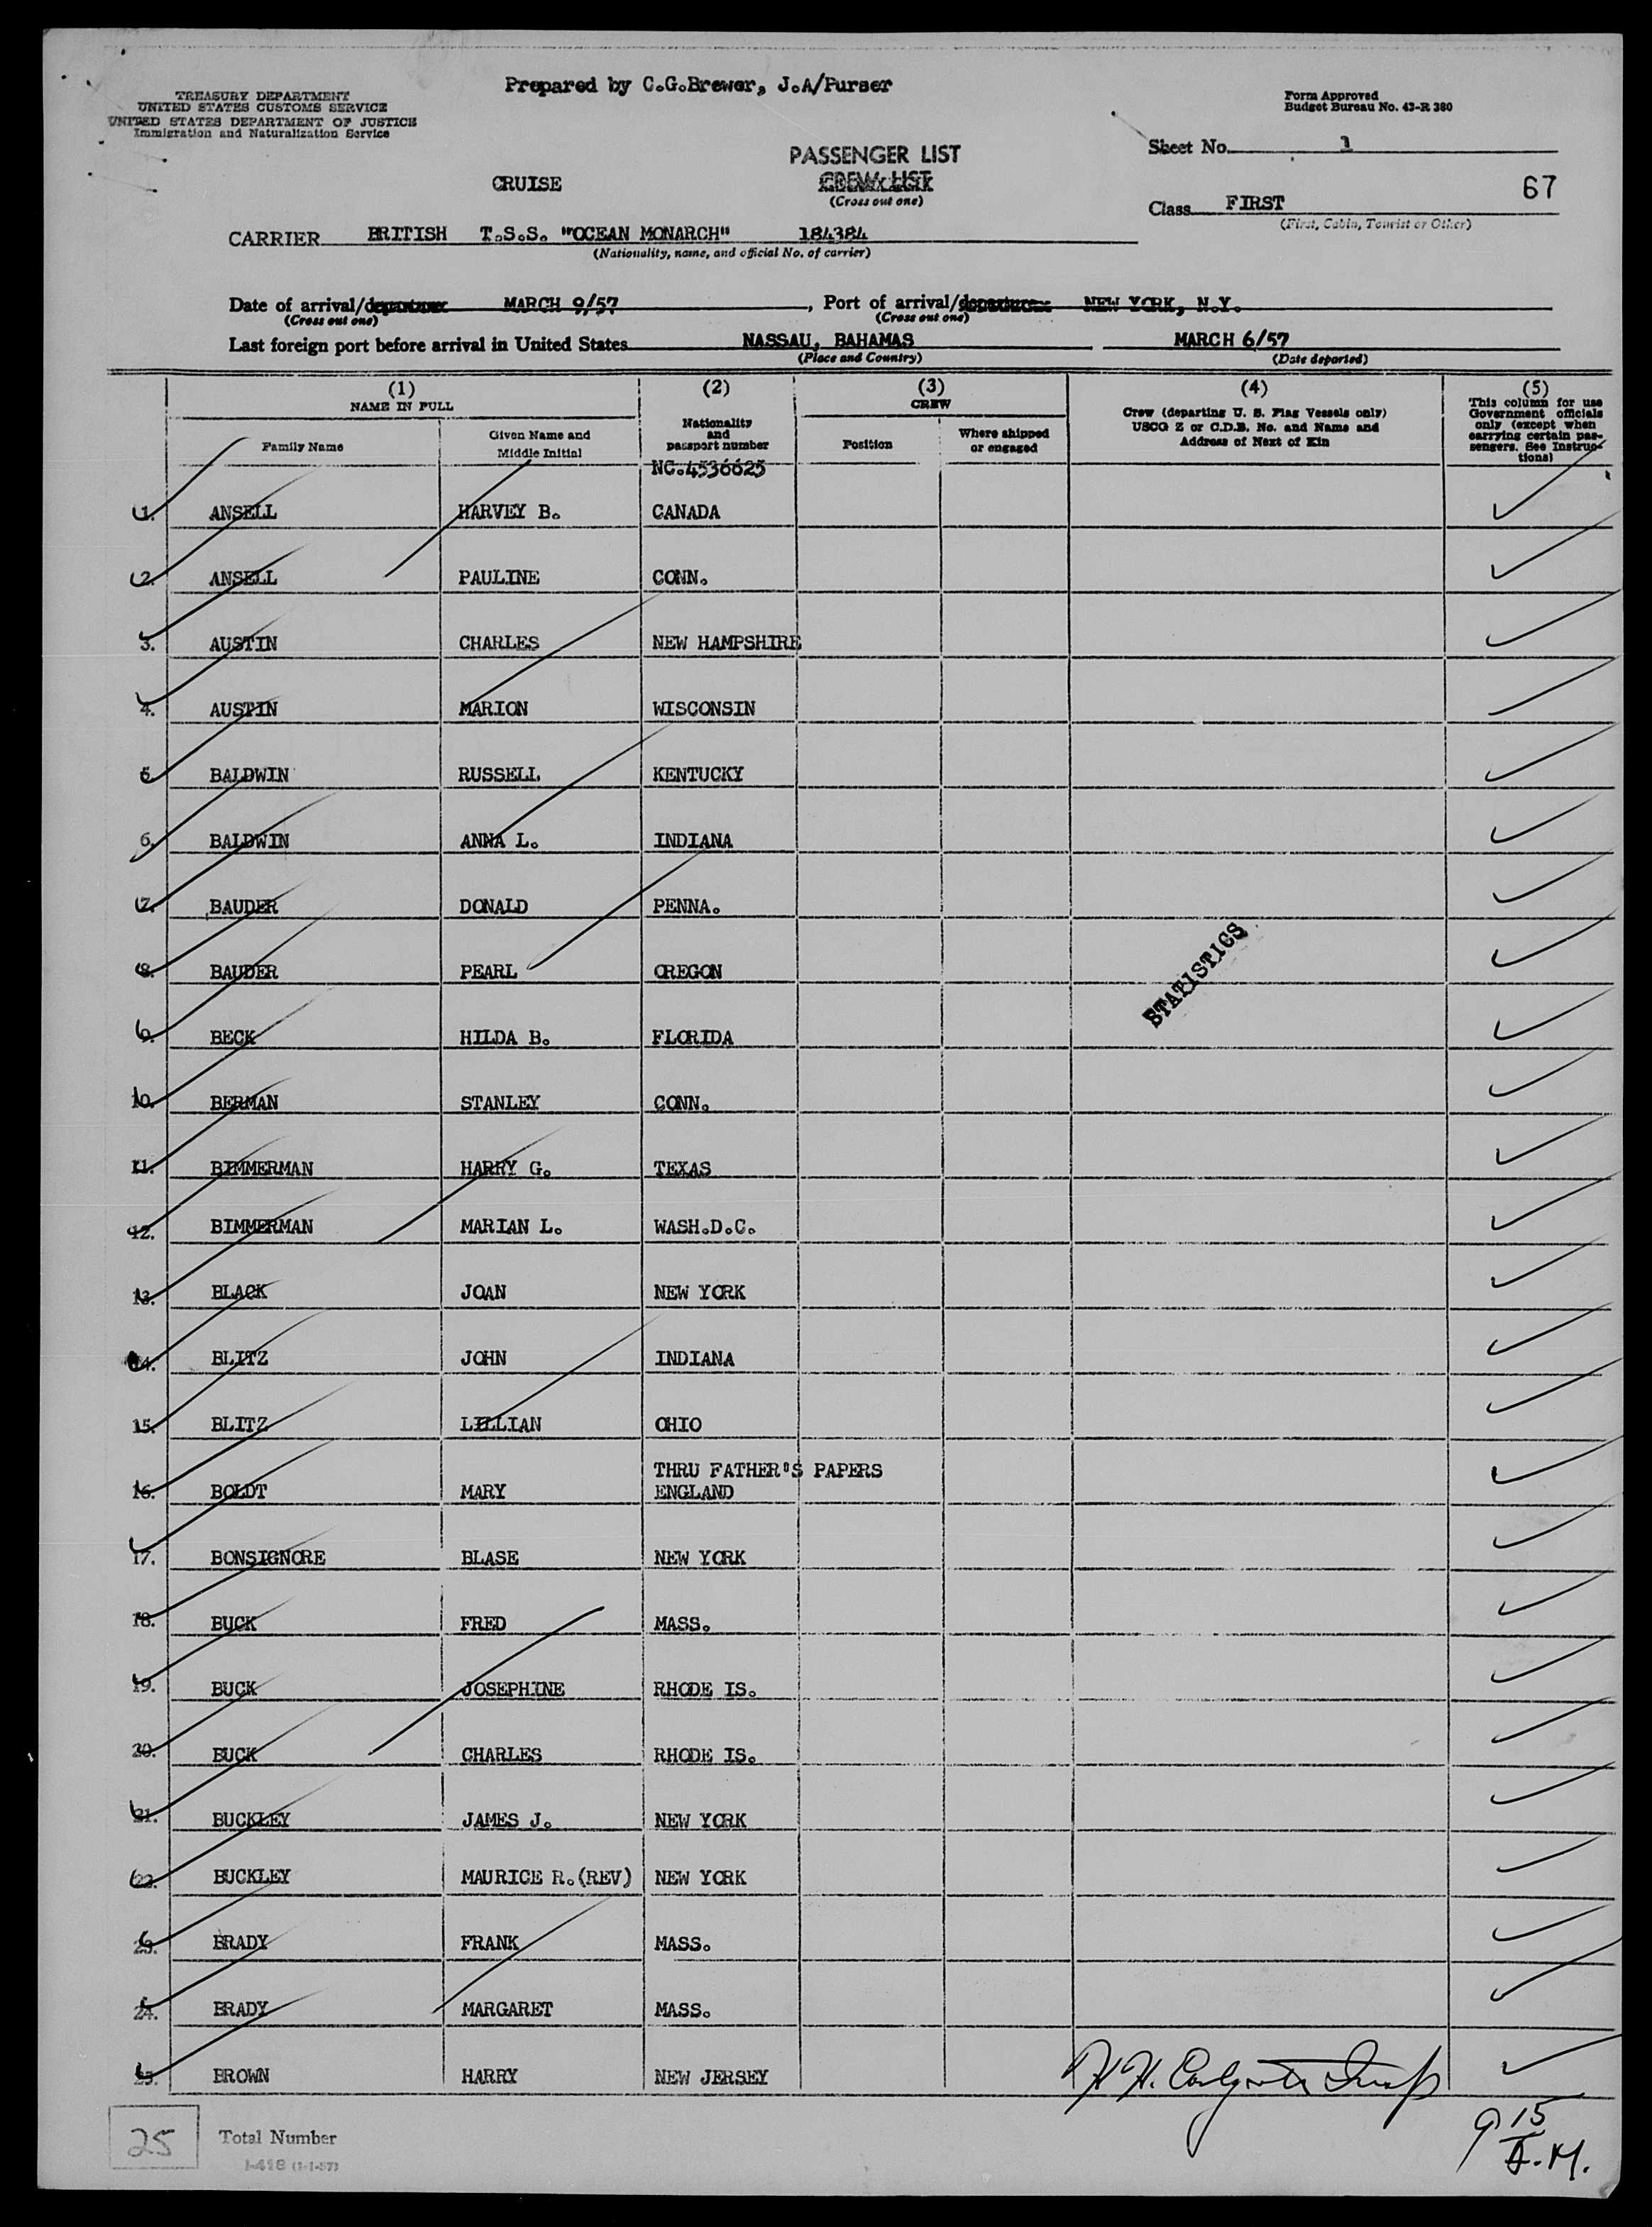 Prepared by C.G.Brewer, J.A/Purser
TREASURY DEPARTMENT
UNITED STATES CUSTOMS SERVICE
UNITED STATES DEPARTMENT OF JUSTICE
Immigration and Naturalization Service
Form Approved
Budget Bureau No. 43-R 380
Sheet No. 1
PASSENGER LIST
CREW LIST
(Cross out one)
CRUISE
67
Class FIRST
(First, Cabin, Tourist or Other)
CARRIER BRITISH T.S.S. "OCEAN MONARCH" 184384
(Nationality, name, and official No. of carrier)
Date of arrival/departure MARCH 9/57, Port of arrival/departure NEW YORK, N.Y.
(Cross out one) (Cross out one)
Last foreign port before arrival in United States NASSAU, BAHAMAS MARCH 6/57
(Place and Country) (Date departed)
(1) NAME IN FULL
Family Name
Given Name and Middle Initial
(2)
Nationality and passport number
(3)
CREW
Position
Where shipped or engaged
(4)
Crew (departing U. S. Flag Vessels only)
USCG Z or C.D.B. No. and Name and
Address of Next of Kin
(5)
This column for use
Government officials
only (except when
carrying certain pas-
sengers. See Instruc-
tions)
NO.4536625
1. ANSELL HARVEY B. CANADA
2. ANSELL PAULINE CONN.
3. AUSTIN CHARLES NEW HAMPSHIRE
4. AUSTIN MARION WISCONSIN
5. BALDWIN RUSSELL KENTUCKY
6. BALDWIN ANNA L. INDIANA
7. BAUDER DONALD PENNA.
8. BAUDER PEARL OREGON
STATISTICS
9. BECK HILDA B. FLORIDA
10. BERMAN STANLEY CONN.
11. BIMMERMAN HARRY G. TEXAS
12. BIMMERMAN MARIAN L. WASH.D.C.
13. BLACK JOAN NEW YORK
14. BLITZ JOHN INDIANA
15. BLITZ LILLIAN OHIO
THRU FATHER'S PAPERS
16. BOLDT MARY ENGLAND
17. BONSIGNORE BLASE NEW YORK
18. BUCK FRED MASS.
19. BUCK JOSEPHINE RHODE IS.
20. BUCK CHARLES RHODE IS.
21. BUCKLEY JAMES J. NEW YORK
22. BUCKLEY MAURICE R.(REV) NEW YORK
23. BRADY FRANK MASS.
24. BRADY MARGARET MASS.
25. BROWN HARRY NEW JERSEY
25 Total Number
I-418 (1-1-57)
9 15
A.M.